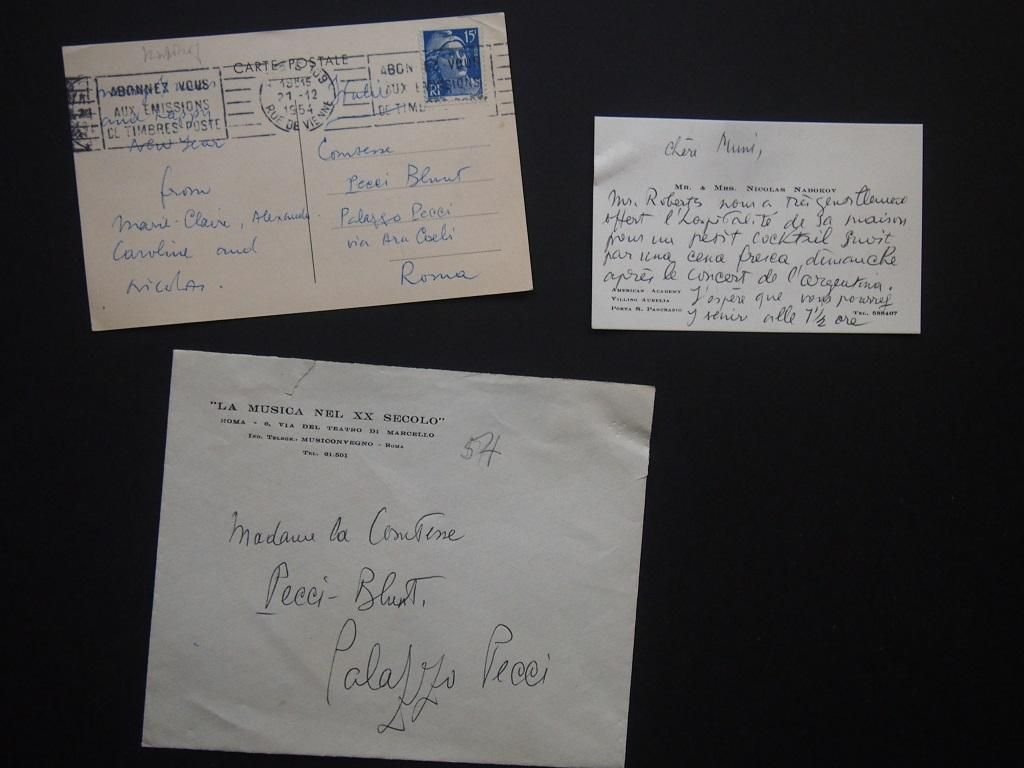 CARTE POSTALE
15F
RF
ABONNEZ VOUS
AUX EMISSIONS
DE TIMBRES POSTE
18H15
21-12
1954
RUE DE VIENNE
ABON Z VOUS
AUX E SSIONS
DE TIMB
and Happy
New Year
from
Marie-Claire, Alexandre
Caroline and
Nicolas.
Italie
Comtesse
Pecci Blunt
Palazzo Pecci
via Ara Coeli
Roma
Chère Mimi,
MR. & MRS. NICOLAS NABOKOV
Mr. Roberts nous a très gentillement
offert l'hospitalité de sa maison
pour un petit cocktail suivit
par una cena fresca, dimanche
après le concert de l'argentina.
AMERICAN ACADEMY
VILLINO AURELIA
PORTA S. PANCRAZIO
TEL. 588407
J'espère que vous pourrez
y venir alle 7½ ore
"LA MUSICA NEL XX SECOLO"
ROMA - 6, VIA DEL TEATRO DI MARCELLO
IND. TELEGR.: MUSICONVEGNO - ROMA
TEL. 61.501
54
Madame la Comtesse
Pecci-Blunt.
Palazzo Pecci